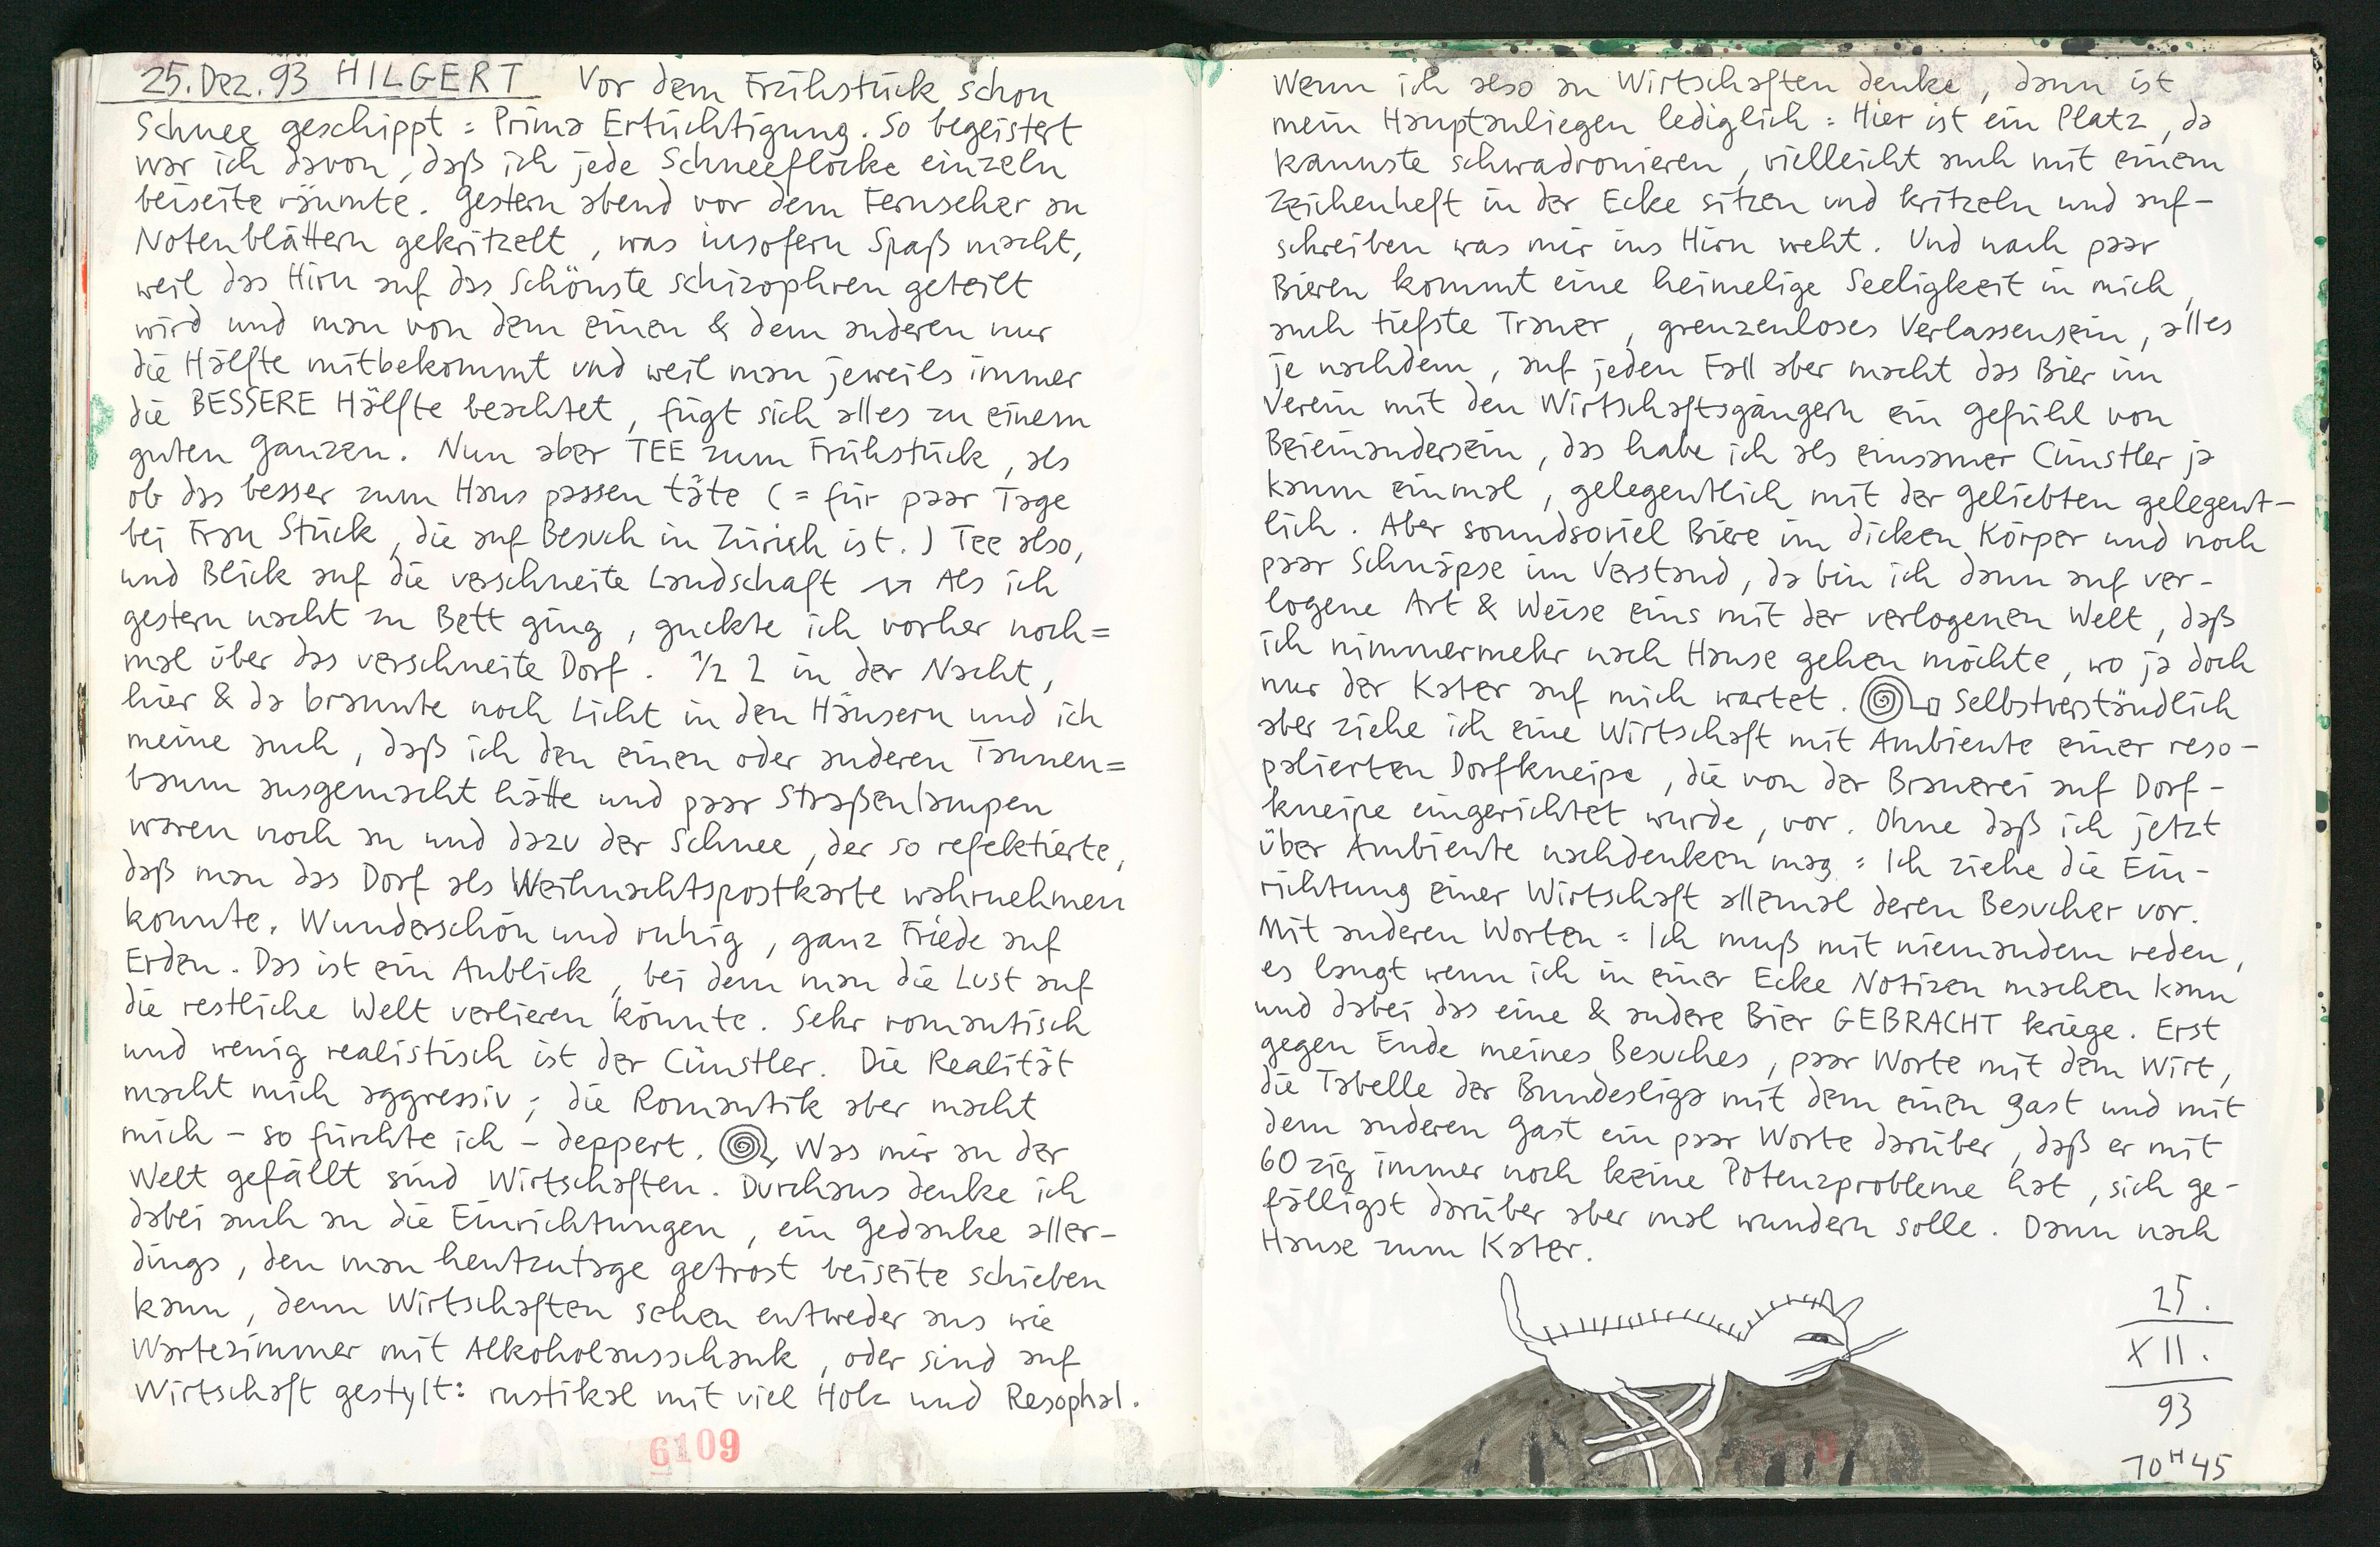 25. Dez. 93 HILGERT Vor dem Frühstück schon
Schnee geschippt = Prima Ertüchtigung. So begeistert
war ich davon, daß ich jede Schneeflocke einzeln
beiseite räumte. Gestern abend vor dem Fernseher an
Notenblättern gekritzelt, was insofern Spaß macht,
weil das Hirn auf das Schönste schizophren geteilt
wird und man von dem einen & dem anderen nur
die Hälfte mitbekommt und weil man jeweils immer
die BESSERE Hälfte beachtet, fügt sich alles zu einem
guten Ganzen. Nun aber TEE zum Frühstück, als
ob das besser zum Haus passen täte (= für paar Tage
bei Frau Stück, die auf Besuch in Zürich ist.) Tee also,
und Blick auf die verschneite Landschaft Als ich
gestern nacht zu Bett ging, guckte ich vorher noch=
mal über das verschneite Dorf. 1/2 2 in der Nacht,
hier & da brannte noch Licht in den Häusern und ich
meine auch, daß ich den einen oder anderen Tannen=
baum ausgemacht hätte und paar Straßenlampen
waren noch an und dazu der Schnee, der so refektierte,
daß man das Dorf als Weihnachtspostkarte wahrnehmen
konnte. Wunderschön und ruhig, ganz Friede auf
Erden. Das ist ein Anblick, bei dem man die Lust auf
die restliche Welt verlieren könnte. Sehr romantisch
und wenig realistisch ist der Cünstler. Die Realität
macht mich aggressiv; die Romantik aber macht
mich – so fürchte ich – deppert. Was mir an der
Welt gefällt sind Wirtschaften. Durchaus denke ich
dabei auch an die Einrichtungen, ein Gedanke aller-
dings, den man heutzutage getrost beiseite schieben
kann, denn Wirtschaften sehen entweder aus wie
Wartezimmer mit Alkoholausschank, oder sind auf
Wirtschaft gestylt: rustikal mit viel Holz und Resophal.
6109
Wenn ich also an Wirtschaften denke, dann ist
mein Hauptanliegen lediglich = Hier ist ein Platz, da
kannste schwadronieren, vielleicht auch mit einem
Zeichenheft in der Ecke sitzen und kritzeln und auf-
schreiben was mir ins Hirn weht. Und nach paar
Bieren kommt eine heimelige Seeligkeit in mich,
auch tiefste Trauer, grenzenloses Verlassensein, alles
je nachdem, auf jeden Fall aber macht das Bier im
Verein mit den Wirtschaftsgängern ein Gefühl von
Beieinandersein, das habe ich als einsamer Cünstler ja
kaum einmal, gelegentlich mit der Geliebten gelegent-
lich. Aber soundsoviel Biere im dicken Körper und noch
paar Schnäpse im Verstand, da bin ich dann auf ver-
logene Art & Weise eins mit der verlogenen Welt, daß
ich nimmermehr nach Hause gehen möchte, wo ja doch
nur der Kater auf mich wartet. Selbstverständlich
aber ziehe ich eine Wirtschaft mit Ambiente einer reso-
palierten Dorfkneipe, die von der Brauerei auf Dorf-
kneipe eingerichtet wurde, vor. Ohne daß ich jetzt
über Ambiente nachdenken mag = Ich ziehe die Ein-
richtung einer Wirtschaft allemal deren Besucher vor.
Mit anderen Worten = Ich muß mit niemandem reden,
es langt wenn ich in einer Ecke Notizen machen kann
und dabei das eine & andere Bier GEBRACHT kriege. Erst
gegen Ende meines Besuches, paar Worte mit dem Wirt,
die Tabelle der Bundesliga mit dem einen Gast und mit
dem anderen Gast ein paar Worte darüber, daß er mit
60zig immer noch keine Potenzprobleme hat, sich ge-
fälligst darüber aber mal wundern solle. Dann nach
Hause zum Kater.
25.
XII.
93
10 H 45